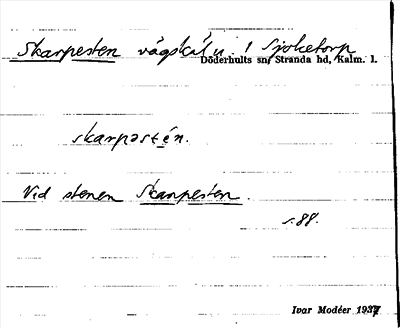 Skarpesten vägskäl u. 1 Sjöketorp
Döderhults sn, Stranda hd, Kalm. l.
skarpəstén.
Vid stenen Skarpesten.
s. 88.
Ivar Modéer 1937